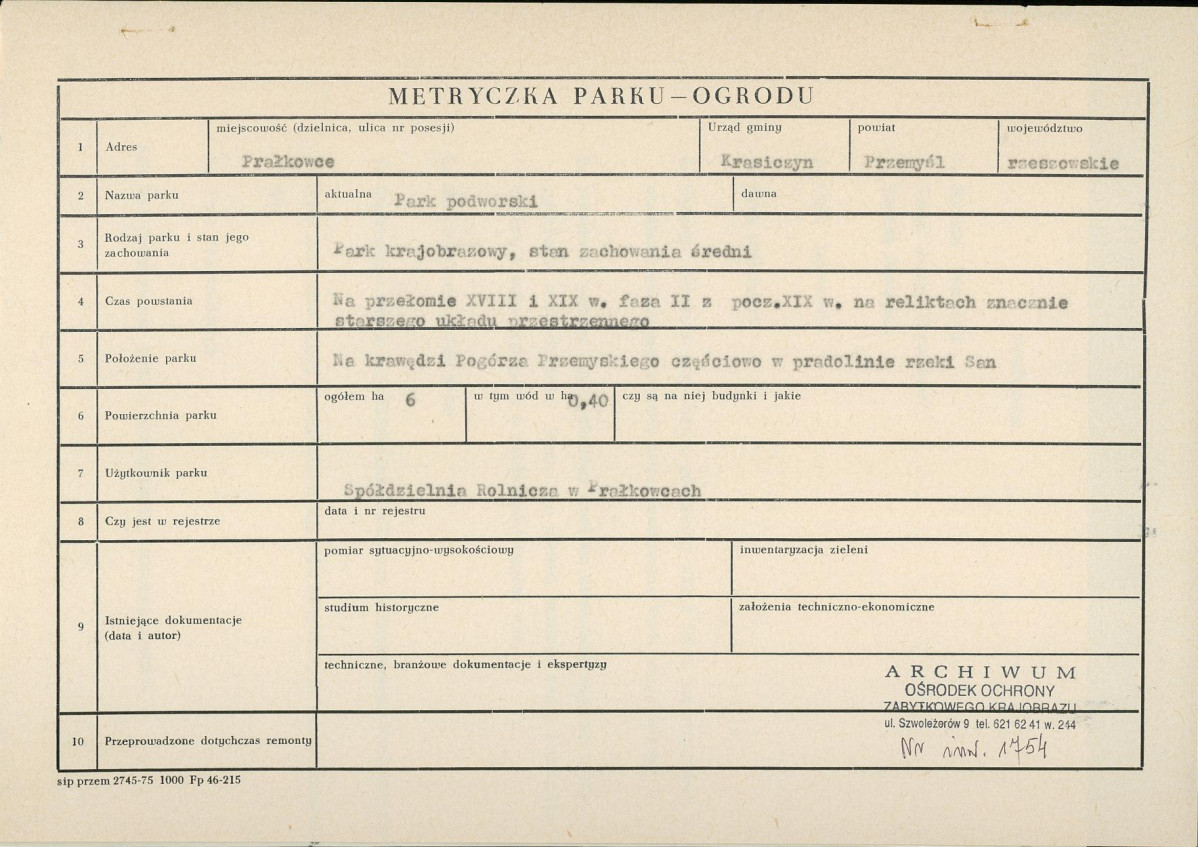 METRYCZKA PARKU — OGRODU
1 Adres
miejscowość (dzielnica, ulica nr posesji)
Prałkowce
Urząd gminy
Krasiczyn
powiat
Przemyśl
województwo
rzeszowskie
2 Nazwa parku
aktualna Park podworski
dawna
3 Rodzaj parku i stan jego
zachowania
Park krajobrazowy, stan zachowania średni
4 Czas powstania
Na przełomie XVIII i XIX w. faza II z pocz.XIX w. na reliktach znacznie
starszego układu przestrzennego
5 Położenie parku
Na krawędzi Pogórza Przemyskiego częściowo w pradolinie rzeki San
6 Powierzchnia parku
ogółem ha 6
w tym wód w ha 0,40
czy są na niej budynki i jakie
7 Użytkownik parku
Spółdzielnia Rolnicza w Prałkowcach
8 Czy jest w rejestrze
data i nr rejestru
9 Istniejące dokumentacje
(data i autor)
pomiar sytuacyjno-wysokościowy
inwentaryzacja zieleni
studium historyczne
założenia techniczno-ekonomiczne
techniczne, branżowe dokumentacje i ekspertyzy
ARCHIWUM
OŚRODEK OCHRONY
ZABYTKOWEGO KRAJOBRAZU
ul. Szwoleżerów 9 tel. 621 62 41 w. 244
Nr inw. 1754
10 Przeprowadzone dotychczas remonty
sip przem 2745-75 1000 Fp 46-215